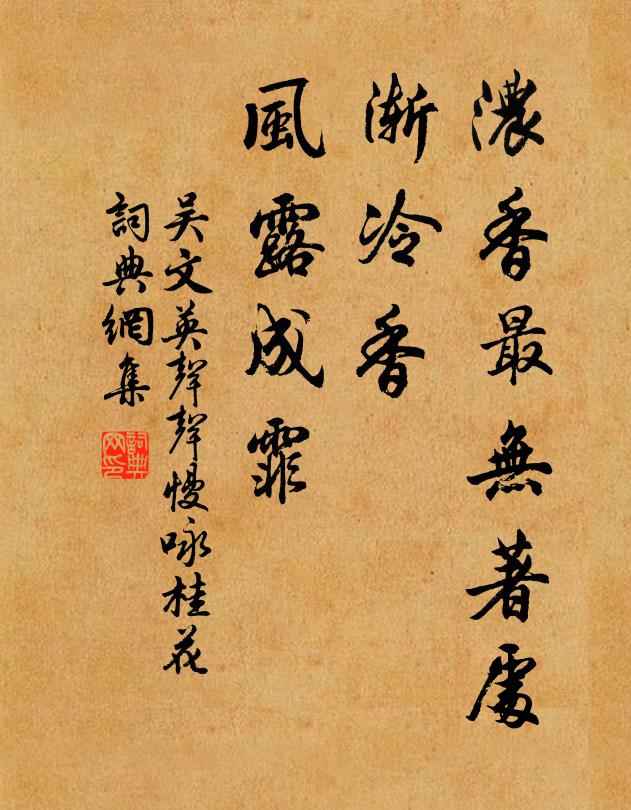 濃香最無著處
漸冷香
風露成霏
吴文英聲聲慢咏桂花
詞典網集
詞典网印